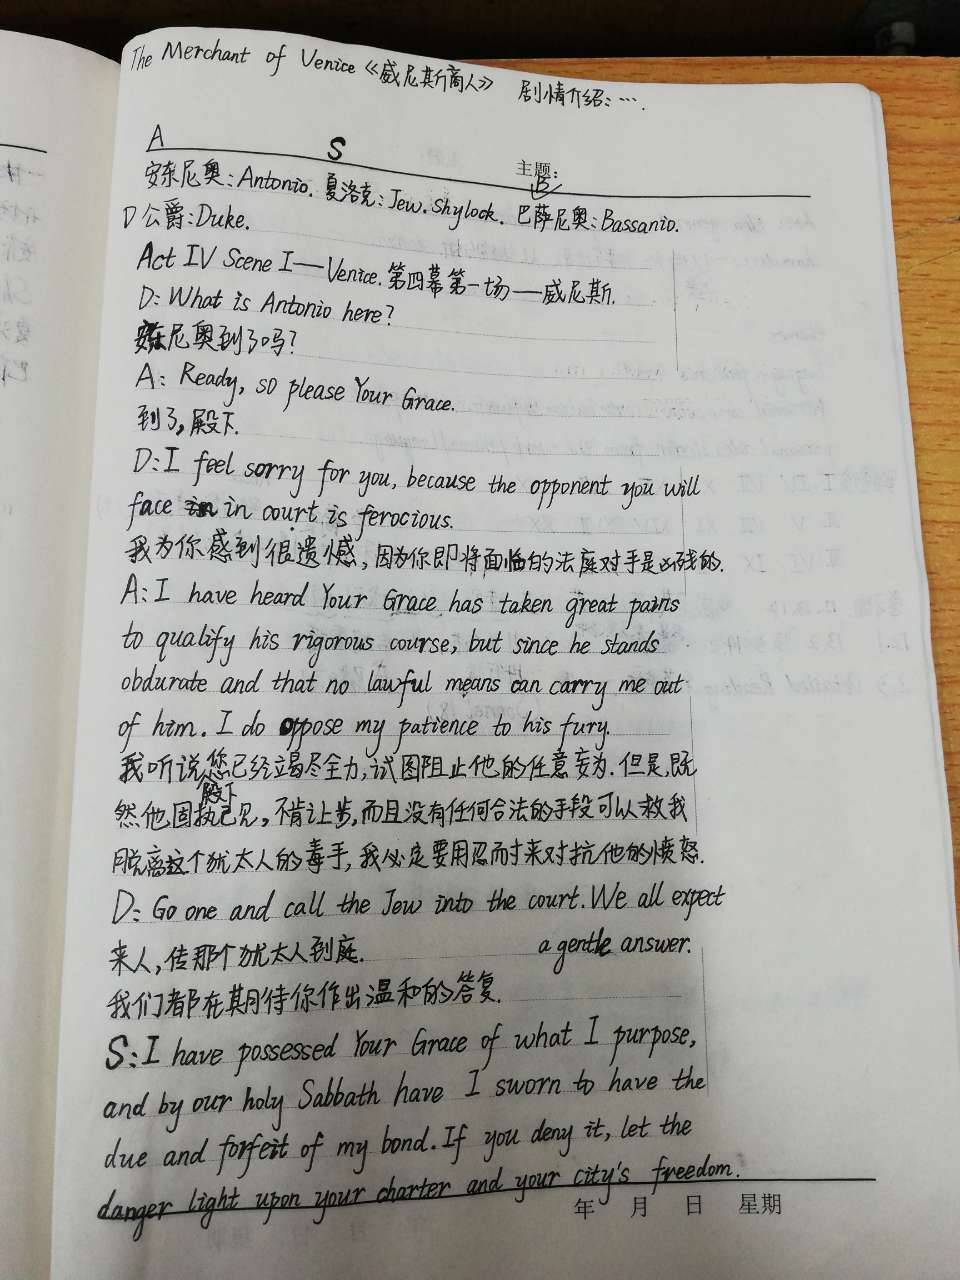 The Merchant of Venice《威尼斯商人》 剧情介绍:….
A S 主题:
B
安东尼奥:Antonio. 夏洛克:Jew. Shylock. 巴萨尼奥:Bassanio.
D 公爵:Duke.
Act IV Scene I——Venice. 第四幕第一场——威尼斯.
D: What is Antonio here?
安东尼奥到了吗?
A: Ready, so please Your Grace.
到了,殿下.
D: I feel sorry for you, because the opponent you will
face in court is ferocious.
我为你感到很遗憾,因为你即将面临的法庭对手是凶残的.
A: I have heard Your Grace has taken great pains
to qualify his rigorous course, but since he stands
obdurate and that no lawful means can carry me out
of him. I do oppose my patience to his fury.
我听说您已经竭尽全力,试图阻止他的任意妄为.但是,既
殿下
然他固执己见,不肯让步,而且没有任何合法的手段可以救我
脱离这个犹太人的毒手,我必定要用忍耐来对抗他的愤怒.
D: Go one and call the Jew into the court. We all expect
a gentle answer.
来人,传那个犹太人到庭.
我们都在期待你作出温和的答复.
S: I have possessed Your Grace of what I purpose,
and by our holy Sabbath have I sworn to have the
due and forfeit of my bond. If you deny it, let the
danger light upon your charter and your city's freedom.
年 月 日 星期